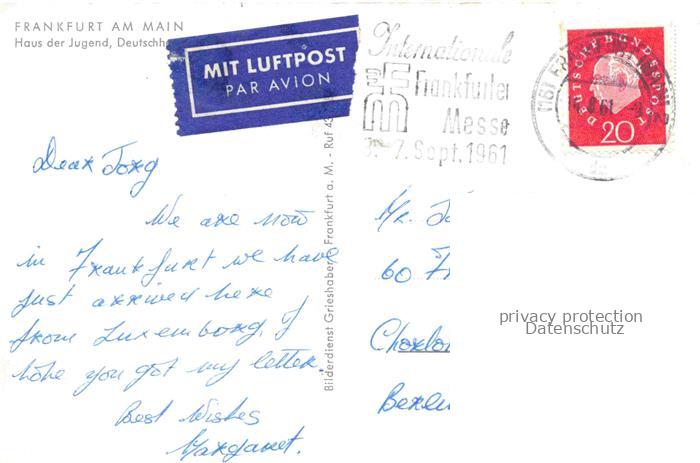 FRANKFURT AM MAIN
Haus der Jugend, Deutschh
MIT LUFTPOST
PAR AVION
Internationale
Frankfurter
Messe
3.-7. Sept. 1961
DEUTSCHE BUNDESPOST
20
Dear Tong
We are now
in Frankfurt we have
just arrived here
from Luxemborg. I
hope you got my letter.
Best Wishes
Margaret.
Bilderdienst Grieshaber, Frankfurt a. M. - Ruf 43
Mr.
60
privacy protection
Datenschutz